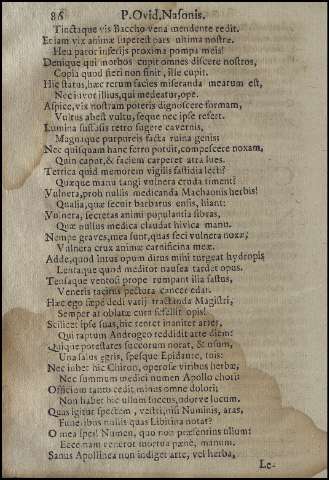 86 P. Ovid. Nasonis.
Tinctaque vis Baccho vena mendente redit.
Etiam vix animæ superest pars ultima nostræ.
Heu patot inferijs proxima pompa meis!
Denique qui morbos cupit omnes discere nostros,
Copia quod fieri non sinit, ille cupit.
Hic status, hæc rerum facies miseranda mearum est,
Nec juvor illius, qui medeatur, ope.
Aspice, vix nostram poteris dignoscere formam,
Vultus abest vultu, seque nec ipse refert.
Lumina suffusis retro fugere cavernis,
Magnaque purpureis facta ruina genis:
Nec quisquam hanc ferro potuit, compescere noxam,
Quin caput, & faciem carperet atra lues.
Terrica quid memorem vigilis fastidia lecti?
Quæque manu tangi vulnera cruda timent?
Vulnera, proh nullis medicanda Machaonis herbis!
Qualia, quæ secuit barbarus ensis, hiant:
Vulnera, secretas animi populantia fibras,
Quæ nullus medica claudat hiulca manu.
Nempe graves, mea sunt, quas feci vulnera noxæ,
Vulnera crux animæ carnificina meæ.
Adde, quod intus opum dirus mihi turgeat hydropis
Lentaque quod meditor nausea tardet opus.
Tensaque ventosi prope rumpant ilia fastus,
Veneris tacitus pectora cancer edat.
Hæc ego sæpè dedi varij tractanda Magistri,
Semper at oblatæ cura fefellit opis!
Scilicet ipse suas, hic tentet inaniter artes,
Qui raptum Androgeo reddidit arte diem:
Quique potestates succorum norat, & usum,
Una salus ægris, spesque Epidaure, tuis:
Nec iuber hic Chiron, operosæ viribus herbæ,
Nec summum medici numen Apollo chori:
Officium tanto cedit minus omne dolori:
Non habet hic ullum succus, odorve locum.
Quas igitur spectem, vestri, nisi Numinis, aras,
Funeribus nullis quas Libitina notat?
O mea spes! Numen, quo non præsentius ullum!
Ecce nam veneror mortua pænè, manum.
Sanus Apollinea non indiget arte, vel herba,
Le-